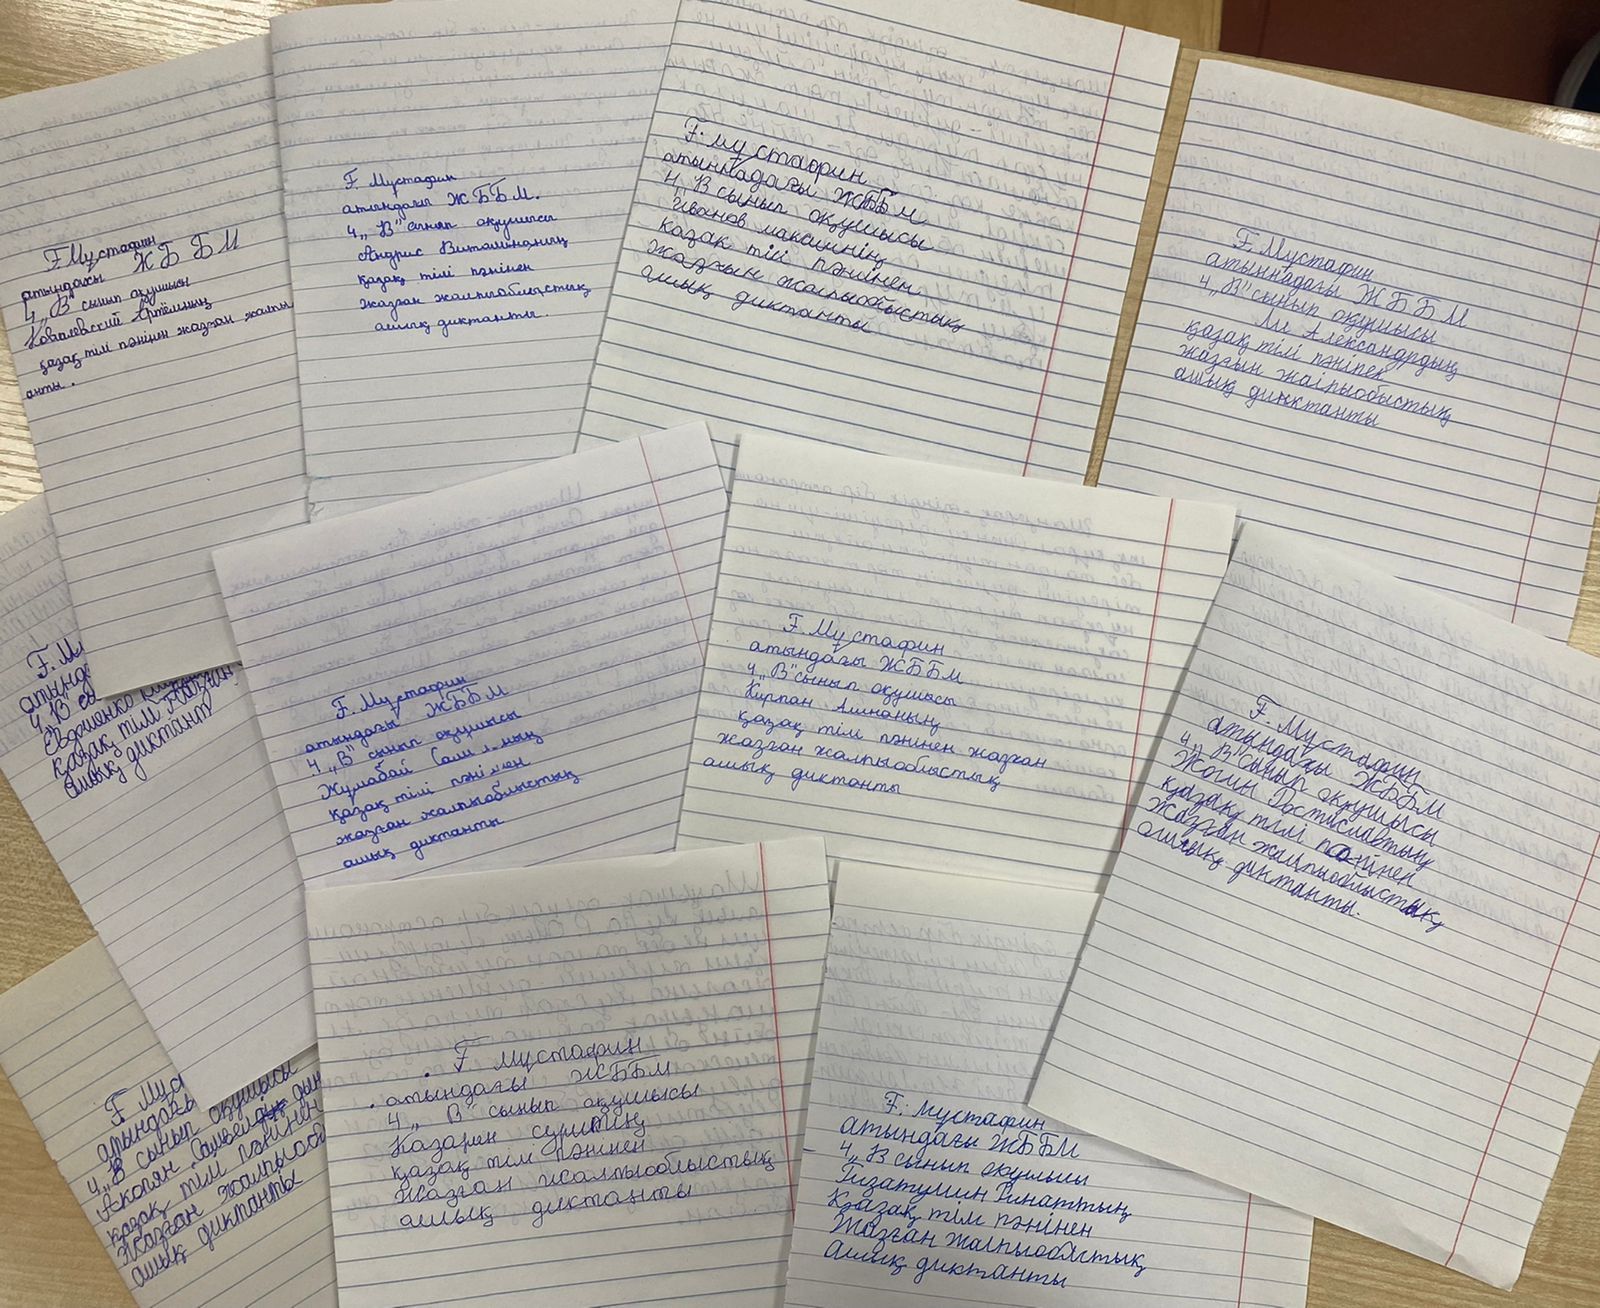 Ғ Мустафин
атындағы ЖББМ
4 „В" сынып оқушысы
Ковалевский Артёмның
қазақ тілі пәнінен жазған жалпы
анты.
Ғ Мустафин
атындағы ЖББМ.
4 „В" сынып оқушысы
Андрис Виталинаның
қазақ тілі пәнінен
жазған жалпыоблыстық
ашық диктанты.
Ғ. Мустафин
атыннадағы ЖББМ
4 „В сынып оқушысы
Иванов максимнің
қазақ тілі пәнінен
жазғын жалпыобыстық
ашық диктанты
Ғ. Мустафин
атыннадағы ЖББМ
4 „В" сынып оқушысы
Ли Александрдың
қазақ тілі пәнінен
жазғын жалпыобыстық
ашық диктанты
Ғ. М
атында
4 „В сы
Евдошенко
қазақ тілі жазған
ашық диктант
Ғ. Мустафин
атындағы ЖББМ
4 „В" сынып оқушысы
Жумабай
қазақ тілі пәнінен
жазған жалпыоблыстық
ашық диктанты
Ғ. Мустафин
атындағы ЖББМ
4 „В" сынып оқушысы
Кирпан Алинаның
қазақ тілі пәнінен жазған
жазған жалпыооблыстық
ашық диктанты
Ғ. Мустафин
атындағы ЖББМ
4 „В" сынып оқушысы
Жогин Ростиславтың
қазақ тілі пәнінен
жазған жалпыоблыстық
ашық диктанты.
Ғ Мус
атындағ
4 „В сынып оқушысы
Акопян
қазақ тілі пәнінен
жазған жалпыооб
ашық диктанты
Ғ Мустафин
атындағы ЖББМ
4 „В" сынып оқушысы
Казарен
қазақ тілі пәнінен
жазған жалпыооблыстық
ашық диктанты
Ғ. Мустафин
атындағы ЖББМ
4 „В сынып оқушыы
Гизатулин Ринаттың
қазақ тілі пәнінен
жазған жалпыооблстық
ашық диктанты